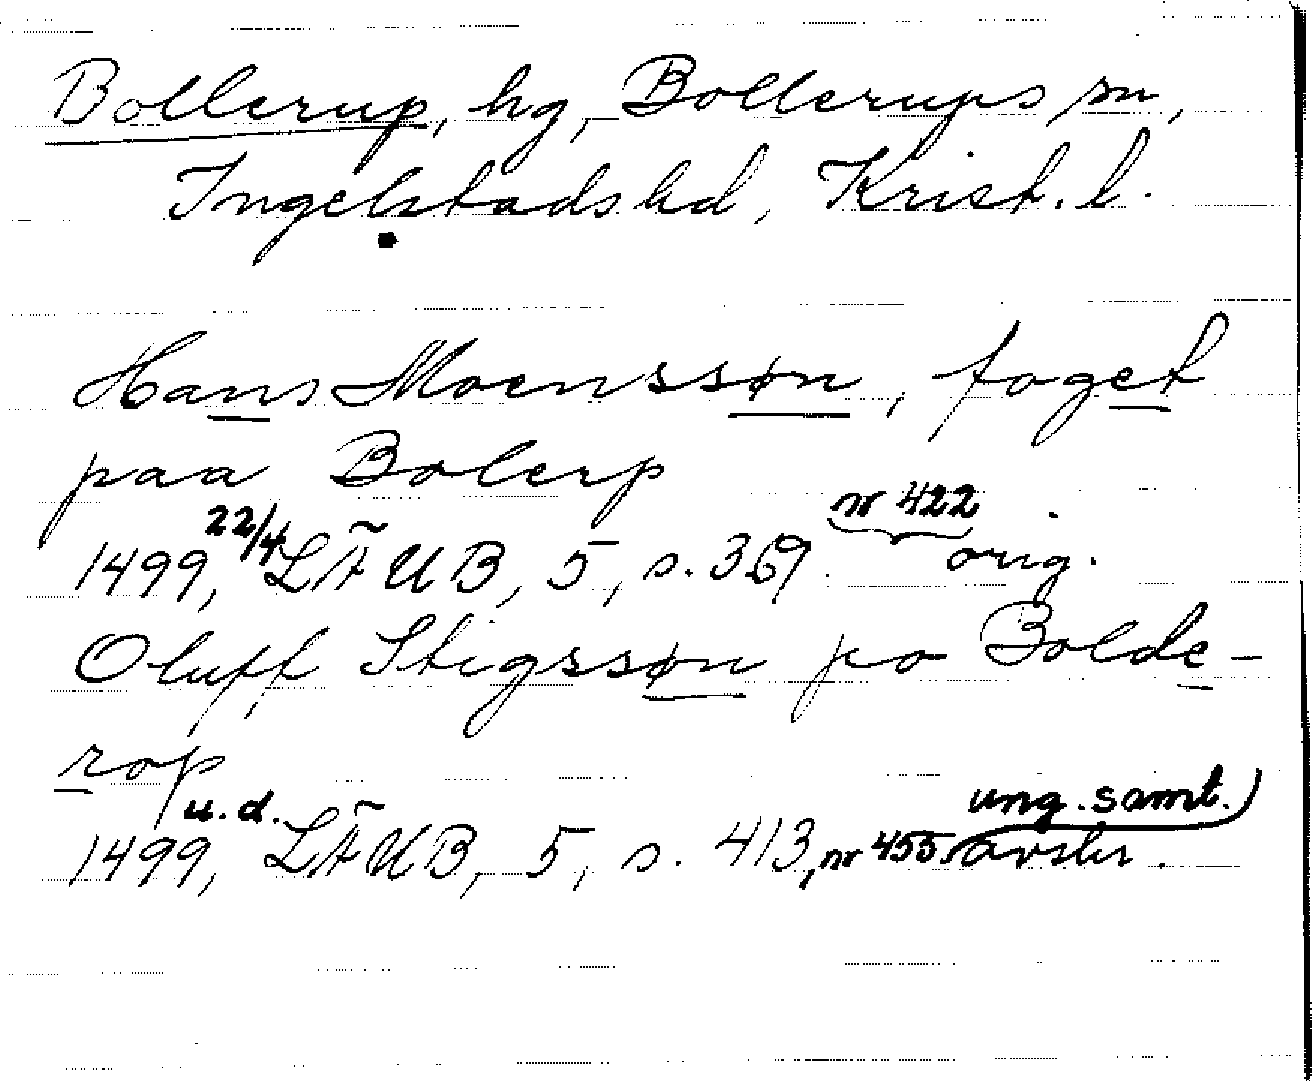 Bollerup, hg, Bollerups sn,
Ingelstads hd, Krist. l.
Hans Moenssøn, foget
paa Bolerp
nr 422
1499, 22/4 LÄUB, 5, s. 369. orig.
Oluff Stigssøn po Bolde-
rop
u.d. ung. samt.
1499, LÄUB, 5, s. 413, nr 455. avskr.